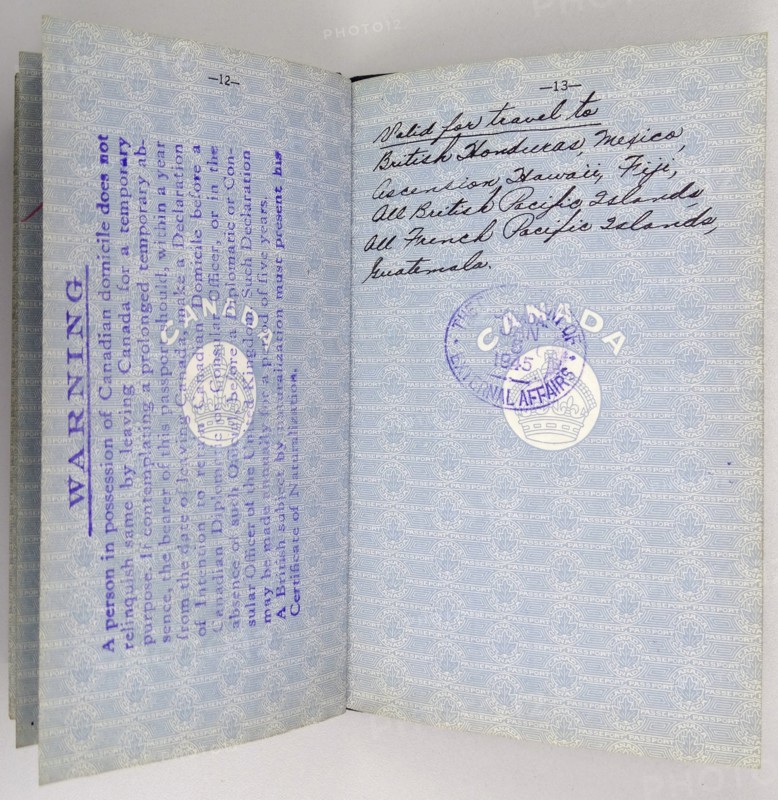 —12—
WARNING
A person in possession of Canadian domicile does not
relinquish same by leaving Canada for a temporary
purpose. If contemplating a prolonged temporary ab-
sence, the bearer of this passport should, within a year
from the date of leaving Canada, make a Declaration
of Intention to retain Canadian Domicile before a
Canadian Diplomatic or Consular Officer, or in the
absence of such Officer before a Diplomatic or Con-
sular Officer of the United Kingdom. Such Declaration
may be made annually for a period of five years.
A British subject by naturalization must present his
Certificate of Naturalization.
CANADA
—13—
Valid for travel to
British Honduras, Mexico,
Ascension, Hawaii, Fiji,
All British Pacific Islands,
All French Pacific Islands,
Guatemala.
CANADA
EXTERNAL AFFAIRS
PASSEPORT
PASSPORT
PHOTO12